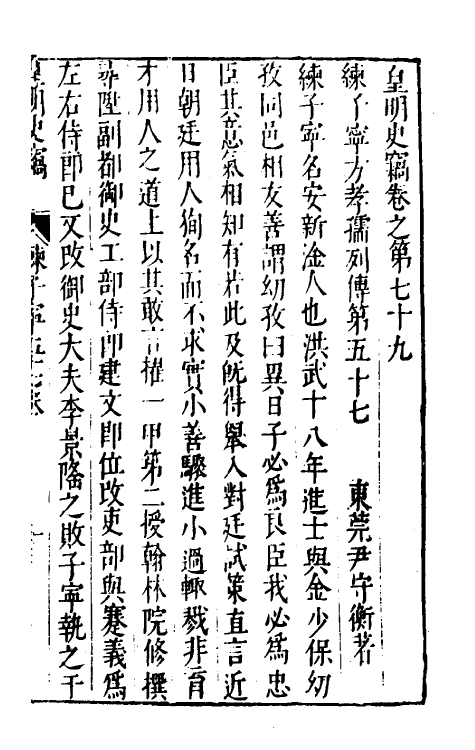 皇明史竊卷之第七十九
練子寧方孝孺列傳第五十七　東莞尹守衡著
練子寧名安新淦人也洪武十八年進士與金少保幼
孜同邑相友善謂幼孜曰異日子必爲良臣我必爲忠
臣其意氣相知有若此及旣得舉入對廷試策直言近
日朝廷用人狥名而不求實小善驟進小過輒戮非育
才用人之道上以其敢言擢一甲第二授翰林院修撰
尋陞副都御史工部侍郎建文即位改吏部與蹇義爲
左右侍郎已又改御史大夫李景隆之敗子寧執之于
皇明史竊
練子寧